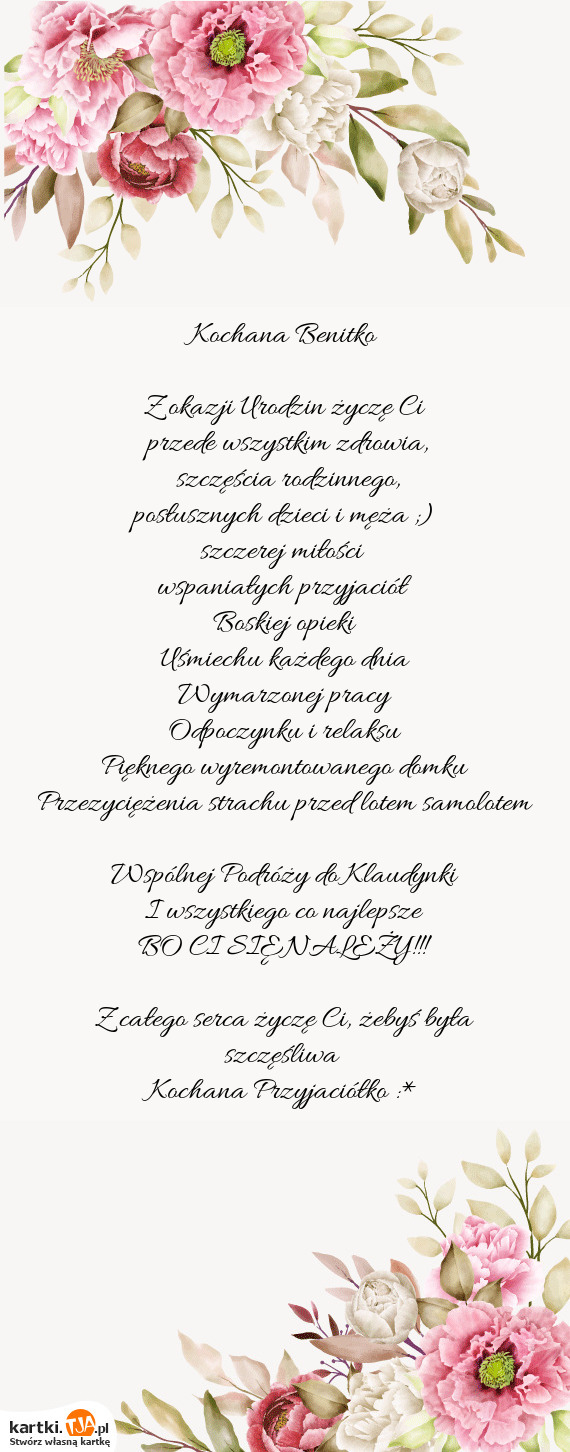 Kochana Benitko
Z okazji Urodzin życzę Ci
przede wszystkim zdrowia,
szczęścia rodzinnego,
posłusznych dzieci i męża ;)
szczerej miłości
wspaniałych przyjaciół
Boskiej opieki
Uśmiechu każdego dnia
Wymarzonej pracy
Odpoczynku i relaksu
Pięknego wyremontowanego domku
Przezyciężenia strachu przed lotem samolotem
Wspólnej Podróży do Klaudynki
I wszystkiego co najlepsze
BO CI SIĘ NALEŻY!!!
Z całego serca życzę Ci, żebyś była
szczęśliwa
Kochana Przyjaciółko :*
kartki.TJA.pl
Stwórz własną kartkę